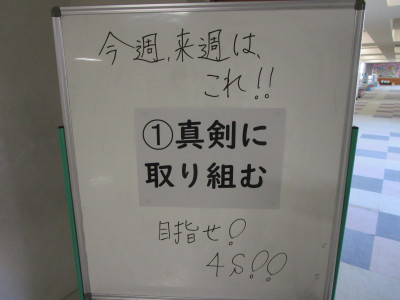 今週,来週は、
これ!!
①真剣に
取り組む
目指せ!
4S!!